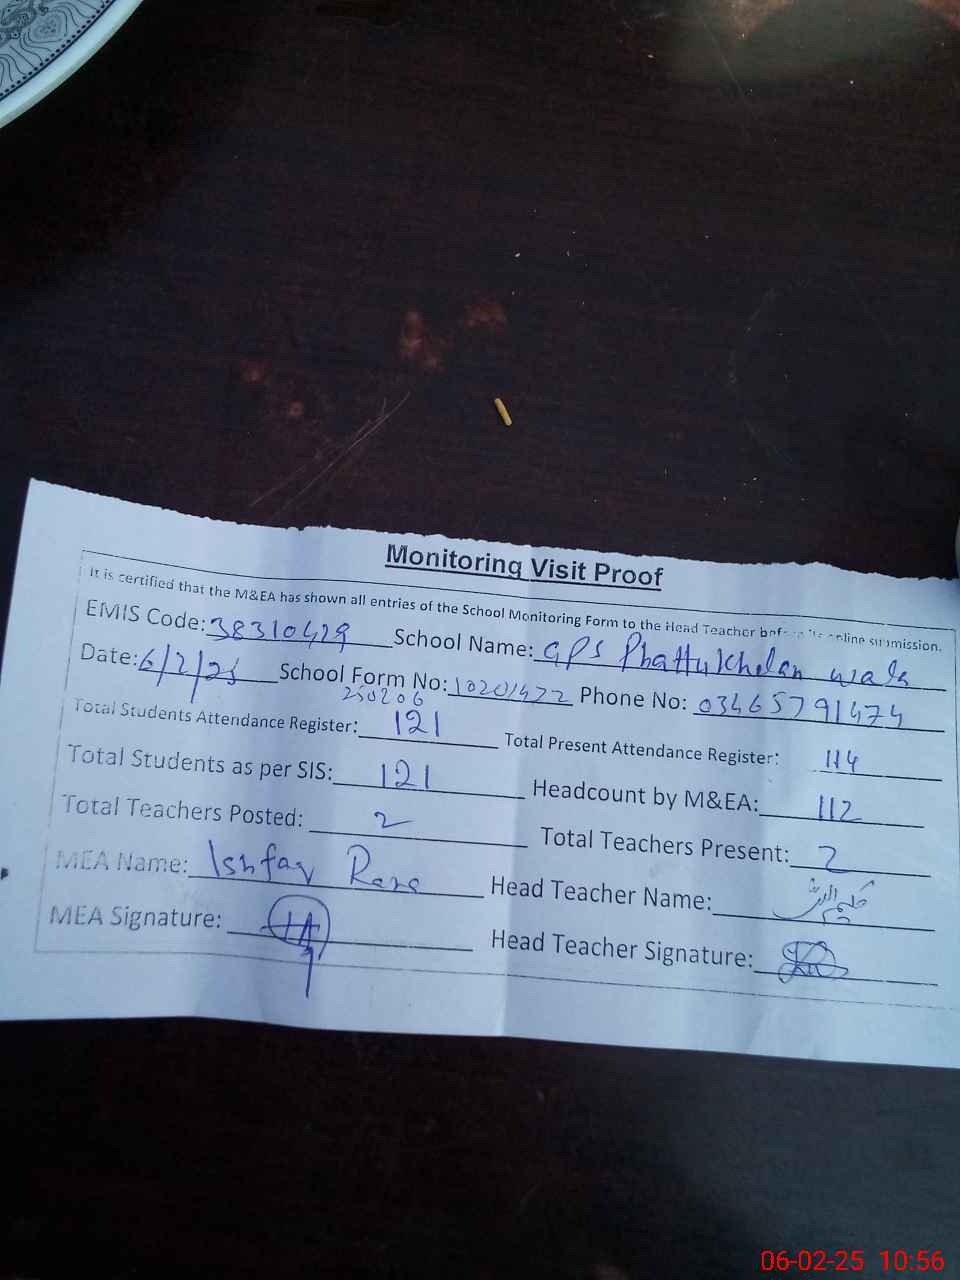 Monitoring Visit Proof
It is certified that the M&EA has shown all entries of the School Monitoring Form to the Head Teacher before its online submission.
EMIS Code: 38310429 School Name: GPS Phattukhelan wala
Date: 6/2/25 School Form No: 10201472 Phone No: 03465791474
250206
Total Students Attendance Register: 121 Total Present Attendance Register: 114
Total Students as per SIS: 121 Headcount by M&EA: 112
Total Teachers Posted: 2 Total Teachers Present: 2
MEA Name: Ishfaq Head Teacher Name:
MEA Signature: Head Teacher Signature:
06-02-25 10:56